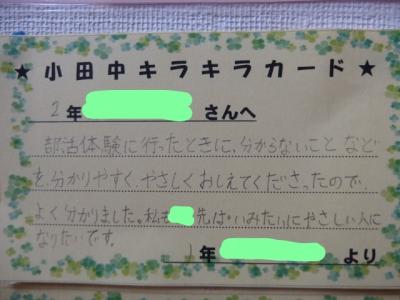 ★小田中キラキラカード★
2年 さんへ
部活体験に行ったときに、分からないことなど
を、分かりやすく、やさしくおしえてくださったので、
よく分かりました。私も 先ぱいみたいにやさしい人に
なりたいです。
1年 より